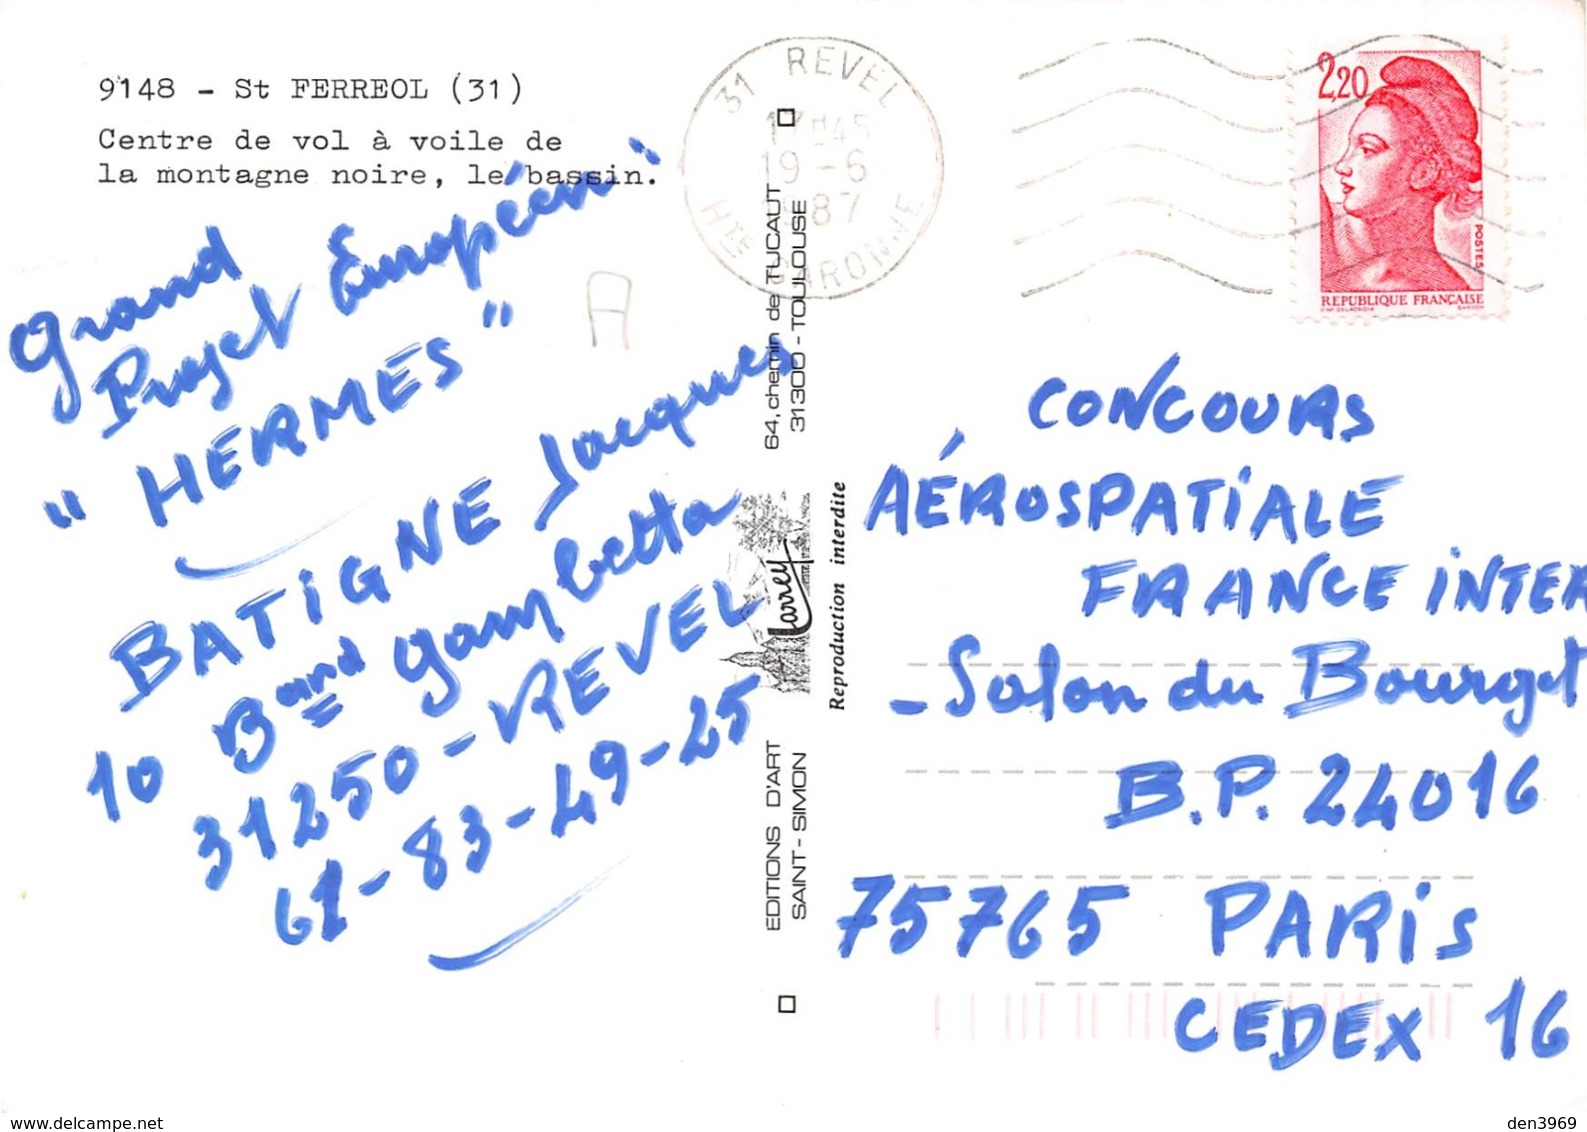 9148 - St FERREOL (31)
Centre de vol à voile de
la montagne noire, le bassin.
Grand
Projet Européen
"HERMES"
BATIGNE Jacques
10 Bard Gambetta
31250-REVEL
61-83-49-25
A
31 REVEL
17H45
19-6
1987
HTE GARONNE
64, chemin de TUCAUT
31300 - TOULOUSE
Larrey
EDITIONS D'ART
SAINT-SIMON
Reproduction interdite
2,20
POSTES
REPUBLIQUE FRANÇAISE
D'AP. DELACROIX GANDON
CONCOURS
AÉROSPATIALE
FRANCE INTER
-Salon du Bourget
B.P. 24016
75765 PARIS
CEDEX 16
delcampe.net
den3969